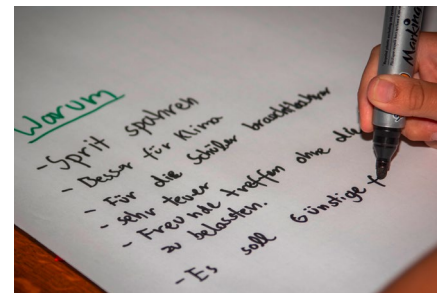 Warum
- Sprit spahren
- Besser für Klima
- Für die Schüler
- sehr teuer
- Freunde treffen ohne die
zu belassten.
- Es soll Günstige f